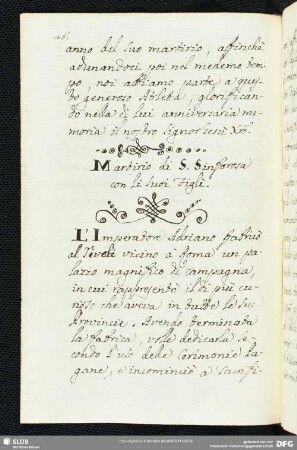 anno del suo martirio, affinchè
adunandoci poi nel medemo tem-
po, noi abbiamo parte a ques-
to generoso Atleta, glorifican-
do nella di lui anniversaria me-
moria il nostro Signor Iesù
Martirio di S. Sinforosa
con li suoi Figli.
L'Imperatore Adriano fabricò
al Tevoli vicino a Roma un pa-
lazzo magnifico di campagna,
in cui rappresentò il di più cu-
rioso che aveva in tutte le sue
Provincie. Avendo terminata
la fabrica, volle dedicarla se-
condo l'uso delle Cerimonie Pa-
gane, e incominciò a Sacrifi-
SLUB
Wir führen Wissen.
DFG